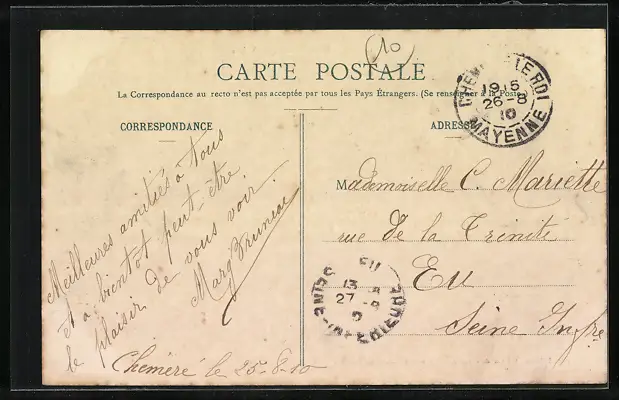 10
CARTE POSTALE
La Correspondance au recto n'est pas acceptée par tous les Pays Étrangers. (Se renseigner à la Poste)
CORRESPONDANCE
ADRESSE
CHEMERÉ LE ROI
1915
26-8
10
MAYENNE
Meilleures amitiés à tous
et à bientôt peut-être
le plaisir de vous voir.
Marg Bruneau
Chémeré le 25-8-10
Mademoiselle C. Mariette
rue de la Trinité
Eu
Seine Infre
EU
13
27-8
SEINE-INFERIEURE